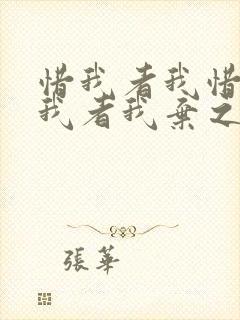 惜我者我惜
我者我棄之
張華